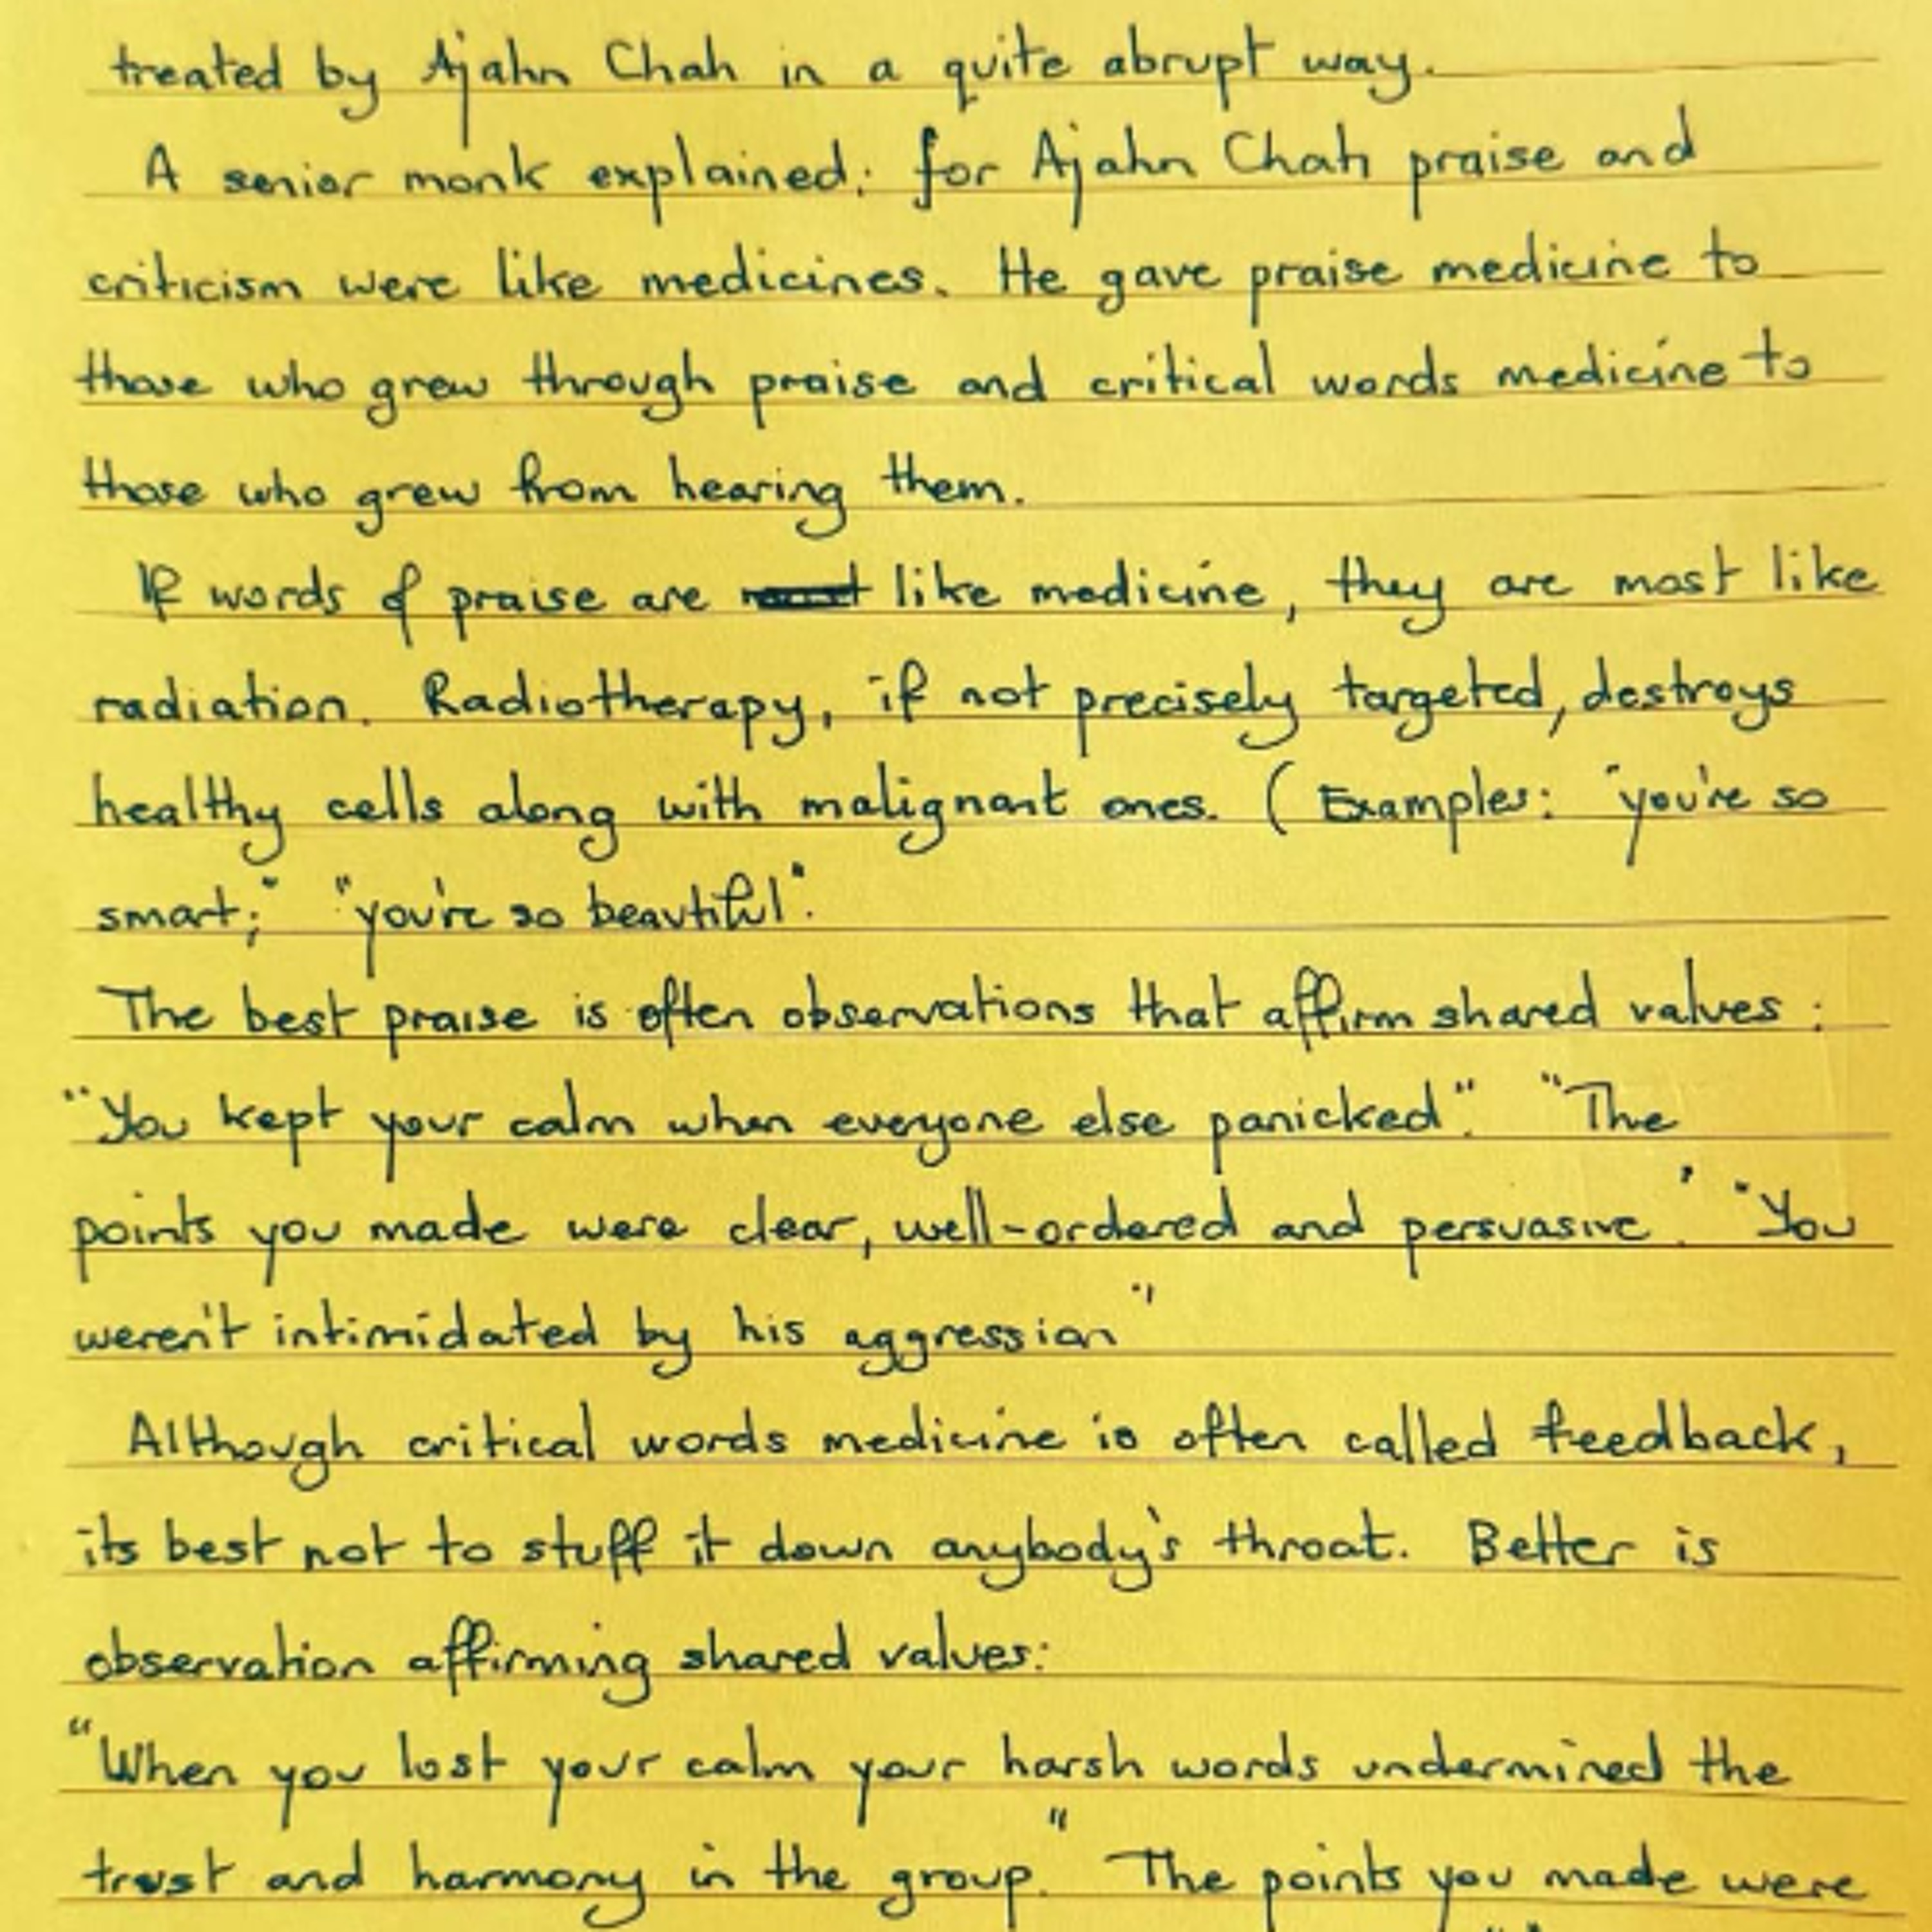 treated by Ajahn Chah in a quite abrupt way.
A senior monk explained: for Ajahn Chah praise and
criticism were like medicines. He gave praise medicine to
those who grew through praise and critical words medicine to
those who grew from hearing them.
If words of praise are like medicine, they are most like
radiation. Radiotherapy, if not precisely targeted, destroys
healthy cells along with malignant ones. (Examples: "you're so
smart;" "you're so beautiful".
The best praise is often observations that affirm shared values:
"You kept your calm when everyone else panicked". "The
points you made were clear, well-ordered and persuasive." "You
weren't intimidated by his aggression"
Although critical words medicine is often called feedback,
its best not to stuff it down anybody's throat. Better is
observation affirming shared values:
"When you lost your calm your harsh words undermined the
trust and harmony in the group." The points you made were